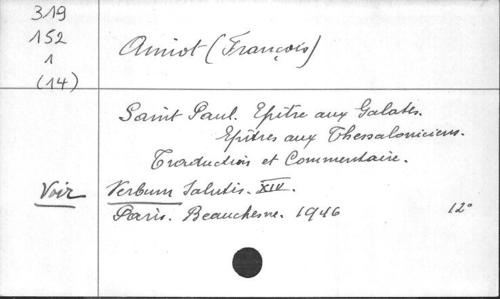 319
152
1
(14)
Amiot (François)
Saint Paul. Epitre aux Galates.
Epitres aux Thessaloniciens.
Traduction et Commentaire.
Voir Verbum Salutis. XIV.
Paris. Beauchesne. 1946 12°